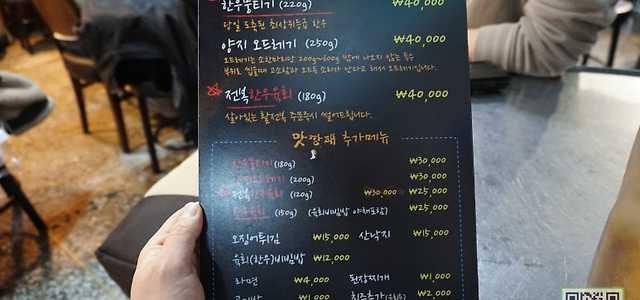 한우뭉티기 (220g) ₩40,000
당일 도축된 최상위등급 한우
양지 오드레기 (250g) ₩40,000
오드레기는 소한마리당 200g~600g 밖에 나오지 않는 특수
부위로 씹을때 고소함과 오드득 소리가 난다고 해서 오드레기입니다.
전복한우육회 (180g) ₩40,000
살아있는 활전복 주문즉시 썰어드립니다.
맛깡패 추가메뉴
한우뭉티기 (180g) ₩30,000
오드레기 (200g) ₩30,000
전복한우육회 (120g) ₩30,000 ₩25,000
한우육회 (150g) (육회비빔밥 야채포함) ₩25,000
오징어튀김 ₩15,000 산낙지 ₩15,000
육회(한우)비빔밥 ₩12,000
라면 ₩4,000 된장찌개 ₩1,000
공기밥 ₩1,000 치즈추가 ₩2,000